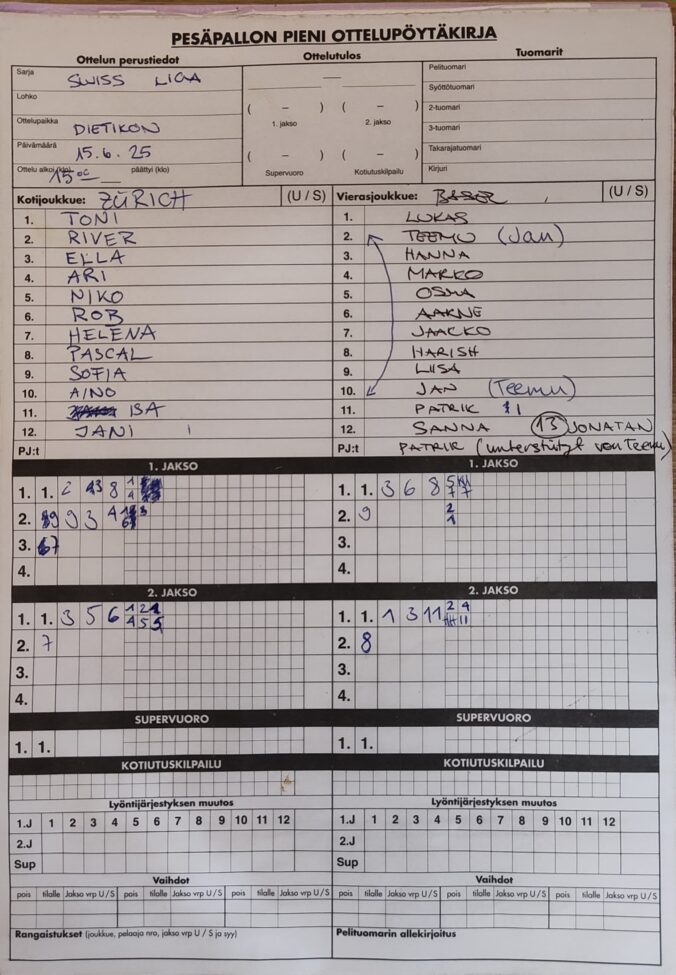 PESÄPALLON PIENI OTTELUPÖYTÄKIRJA
Ottelun perustiedot
Ottelutulos
Tuomarit
Sarja SWISS LIGA
Lohko
Ottelupaikka DIETIKON
Päivämäärä 15.6.25
Ottelu alkoi (klo) 15 00 päättyi (klo)
( – ) ( – )
1. jakso 2. jakso
( – ) ( – )
Supervuoro Kotiutuskilpailu
Pelituomari
Syöttötuomari
2-tuomari
3-tuomari
Takarajatuomari
Kirjuri
Kotijoukkue: ZÜRICH (U / S)
1. TONI
2. RIVER
3. ELLA
4. ARI
5. NIKO
6. ROB
7. HELENA
8. PASCAL
9. SOFIA
10. AINO
11. ISA
12. JANI
PJ:t
Vierasjoukkue: (U / S)
1. LUKAS
2. TEEMU (Jan)
3. HANNA
4. MARKO
5. OSMA
6. AAKNE
7. JAAKKO
8. HARISH
9. LIISA
10. JAN (Teemu)
11. PATRIK
12. SANNA 13 JONATAN
PJ:t PATRIK (unterstützt von Teemu)
1. JAKSO
1. 1. 2 8
2. 9 3 4
3.
4.
1. JAKSO
1. 1. 3 6 8
2. 9
3.
4.
2. JAKSO
1. 1. 3 5 6
2. 7
3.
4.
2. JAKSO
1. 1. 1 3 11
2. 8
3.
4.
SUPERVUORO
1. 1.
SUPERVUORO
1. 1.
KOTIUTUSKILPAILU
KOTIUTUSKILPAILU
Lyöntijärjestyksen muutos
1.J 1 2 3 4 5 6 7 8 9 10 11 12
2.J
Sup
Lyöntijärjestyksen muutos
1.J 1 2 3 4 5 6 7 8 9 10 11 12
2.J
Sup
Vaihdot
pois tilalle Jakso vrp U / S pois tilalle Jakso vrp U / S pois tilalle Jakso vrp U / S
Vaihdot
pois tilalle Jakso vrp U / S pois tilalle Jakso vrp U / S pois tilalle Jakso vrp U / S
Rangaistukset (joukkue, pelaaja nro, jakso vrp U / S ja syy)
Pelituomarin allekirjoitus